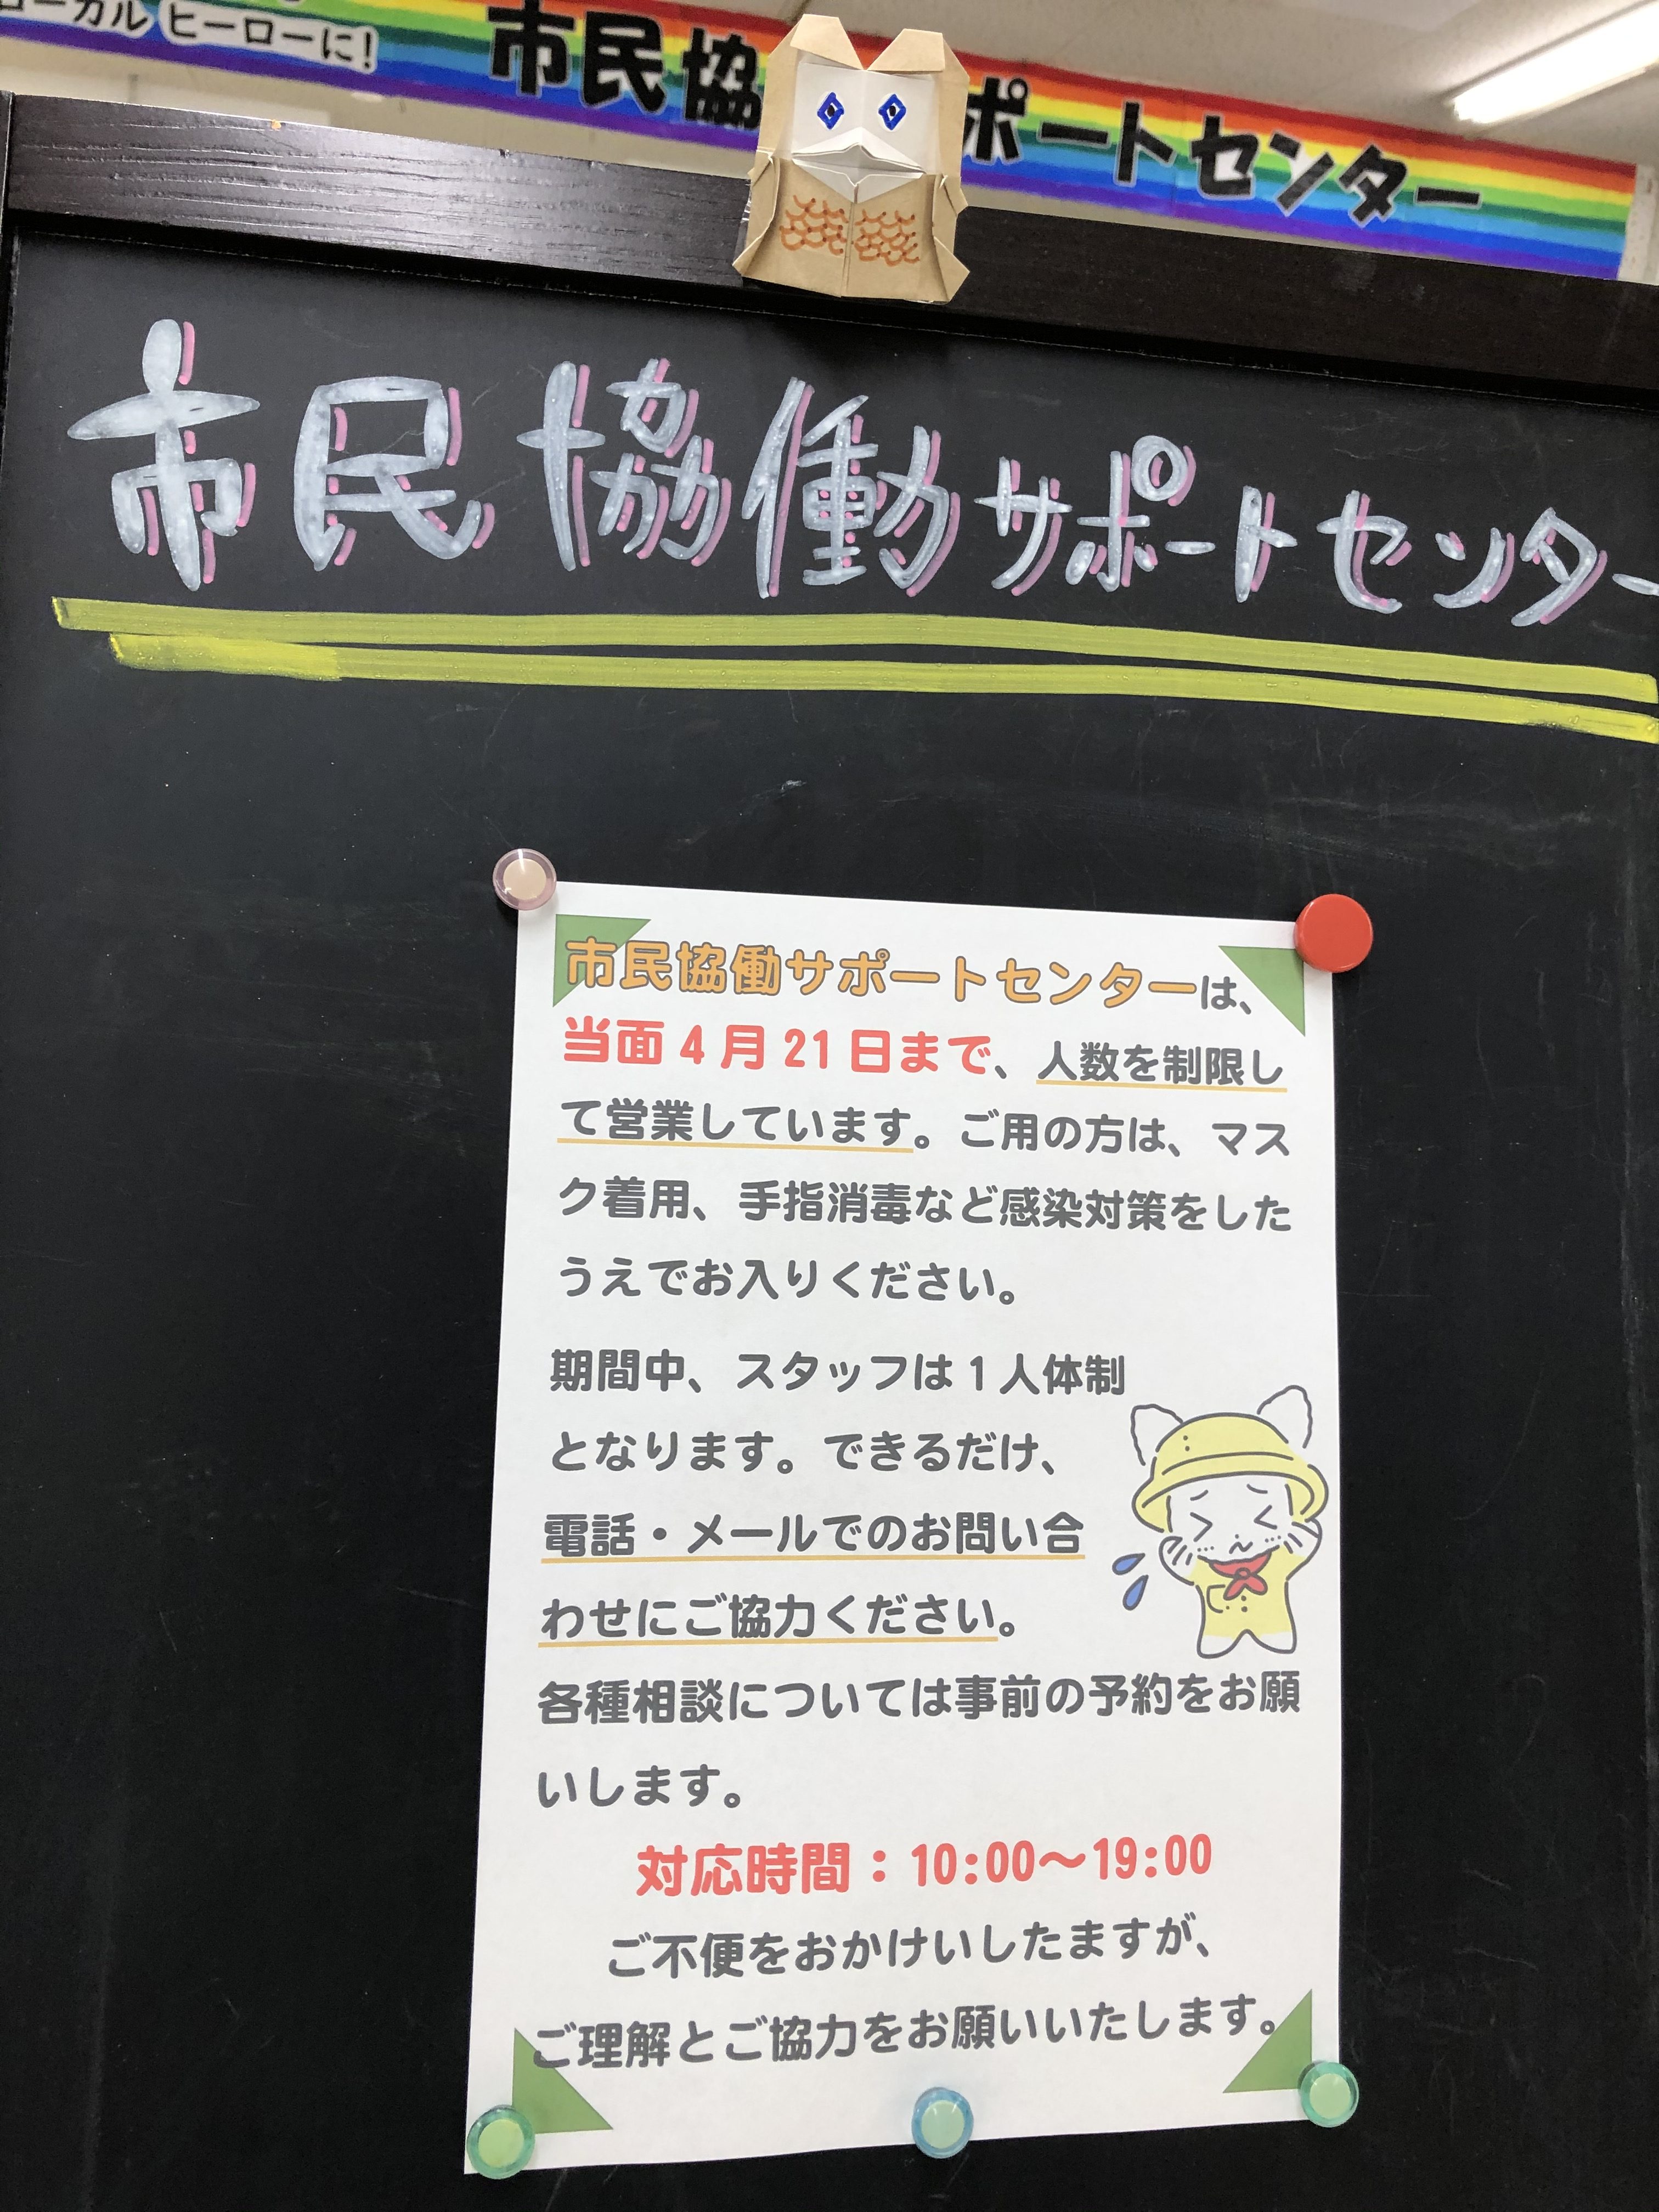 ーカル ヒーローに！
市民協 ポートセンター
市民協働サポートセンター
市民協働サポートセンターは、
当面4月21日まで、人数を制限し
て営業しています。ご用の方は、マス
ク着用、手指消毒など感染対策をした
うえでお入りください。
期間中、スタッフは1人体制
となります。できるだけ、
電話・メールでのお問い合
わせにご協力ください。
各種相談については事前の予約をお願
いします。
対応時間：10:00～19:00
ご不便をおかけいしたますが、
ご理解とご協力をお願いいたします。